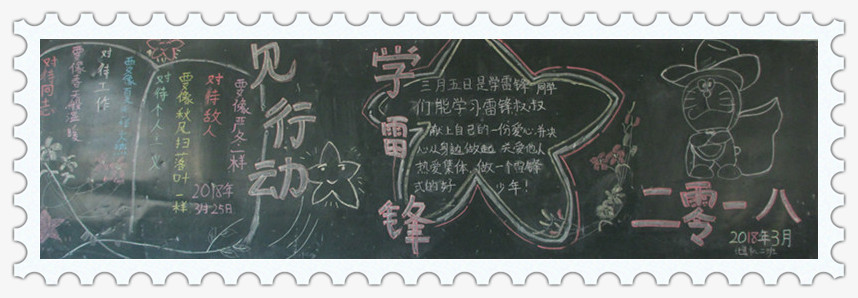 学雷锋
见行动
三月五日是学雷锋 同学
们能学习雷锋叔叔
献上自己的一份爱心,并决
心从身边做起 关爱他人
热爱集体,做一个雷锋
式的好 少年!
二零一八
2018年3月
对待同志
要像春天般温暖
对待工作
要像夏天
对待个人主义
要像秋风扫落叶一样
对待敌人
要像严冬一样
2018年
3月25日